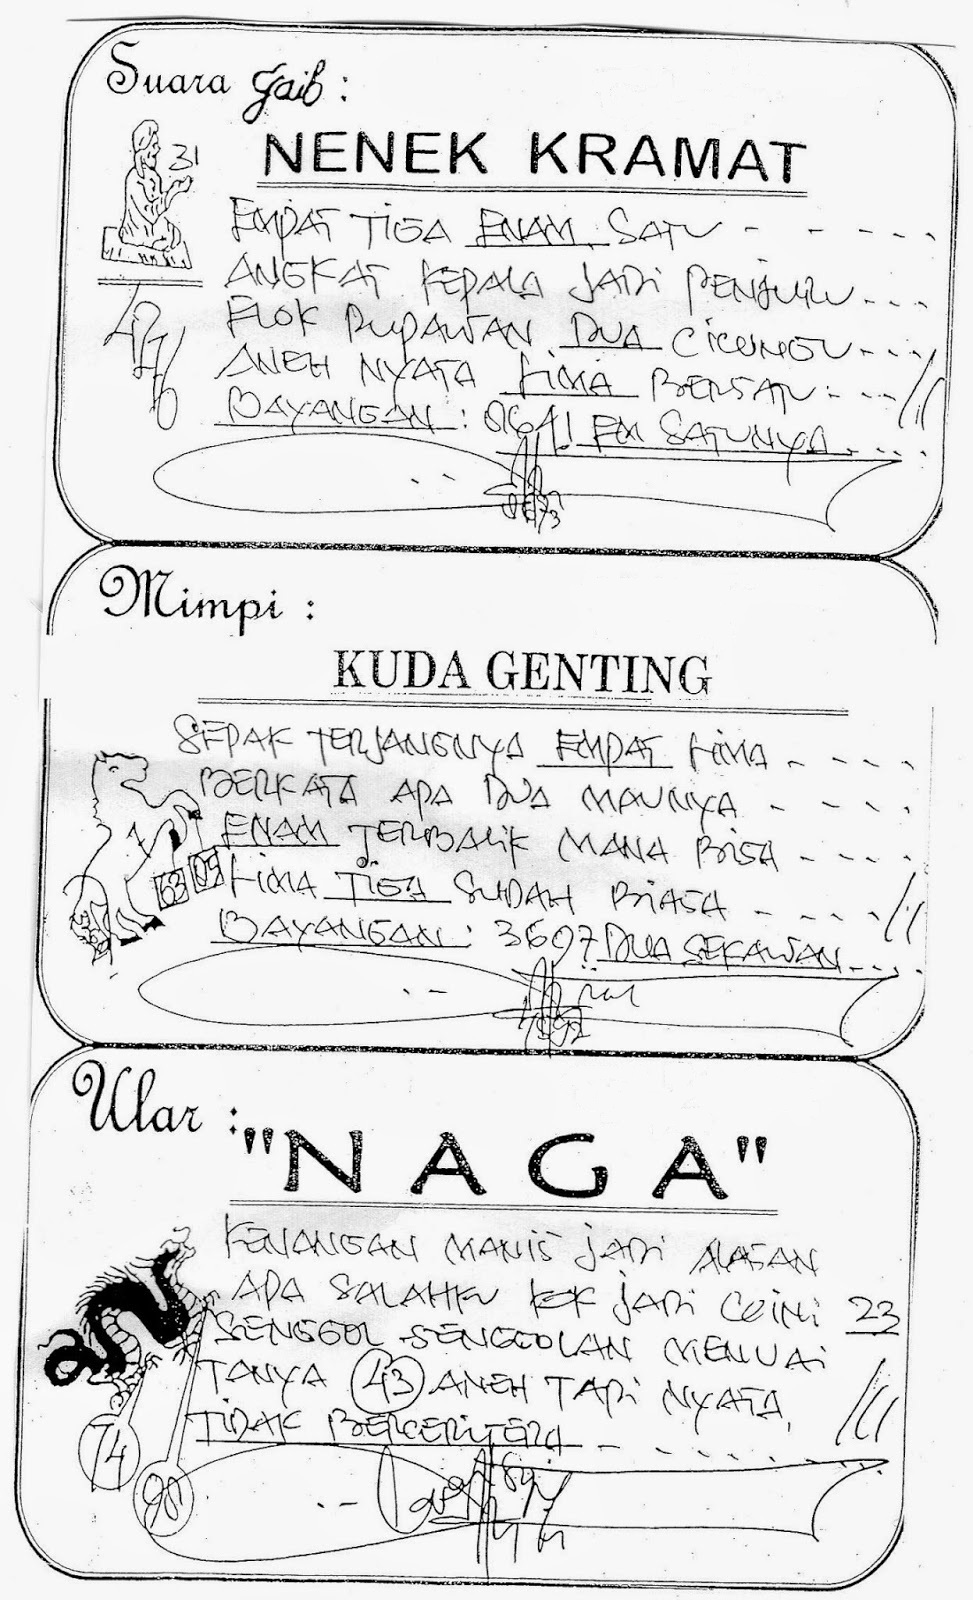 Suara Gaib :
NENEK KRAMAT
31
EMPAT TIGA ENAM SATU - - - - -
ANGKAT KEPALA JADI PENJURU - - -
ELOK RUPAWAN DUA - - - -
ANEH NYATA LIMA BERSATU - - -
BAYANGAN : 8641 EM SATUNYA - - -
Mimpi :
KUDA GENTING
SEPAK TERJANGNYA EMPAT LIMA - - - -
BERKATA APA DUA MAUNYA - - - -
ENAM TERBALIK MANA BISA - - - -
63 05
LIMA TIGA SUDAH BIASA - - - -
BAYANGAN : 3697 DUA SEKAWAN - - -
Ular :
"NAGA"
KENANGAN MANIS JADI ALASAN
APA SALAHKU KOK JADI BEGINI 23
SENGGOL-SENGGOLAN MENUAI
TANYA 43 ANEH TAPI NYATA
TIDAK BERCERITERA - - - -
74
90